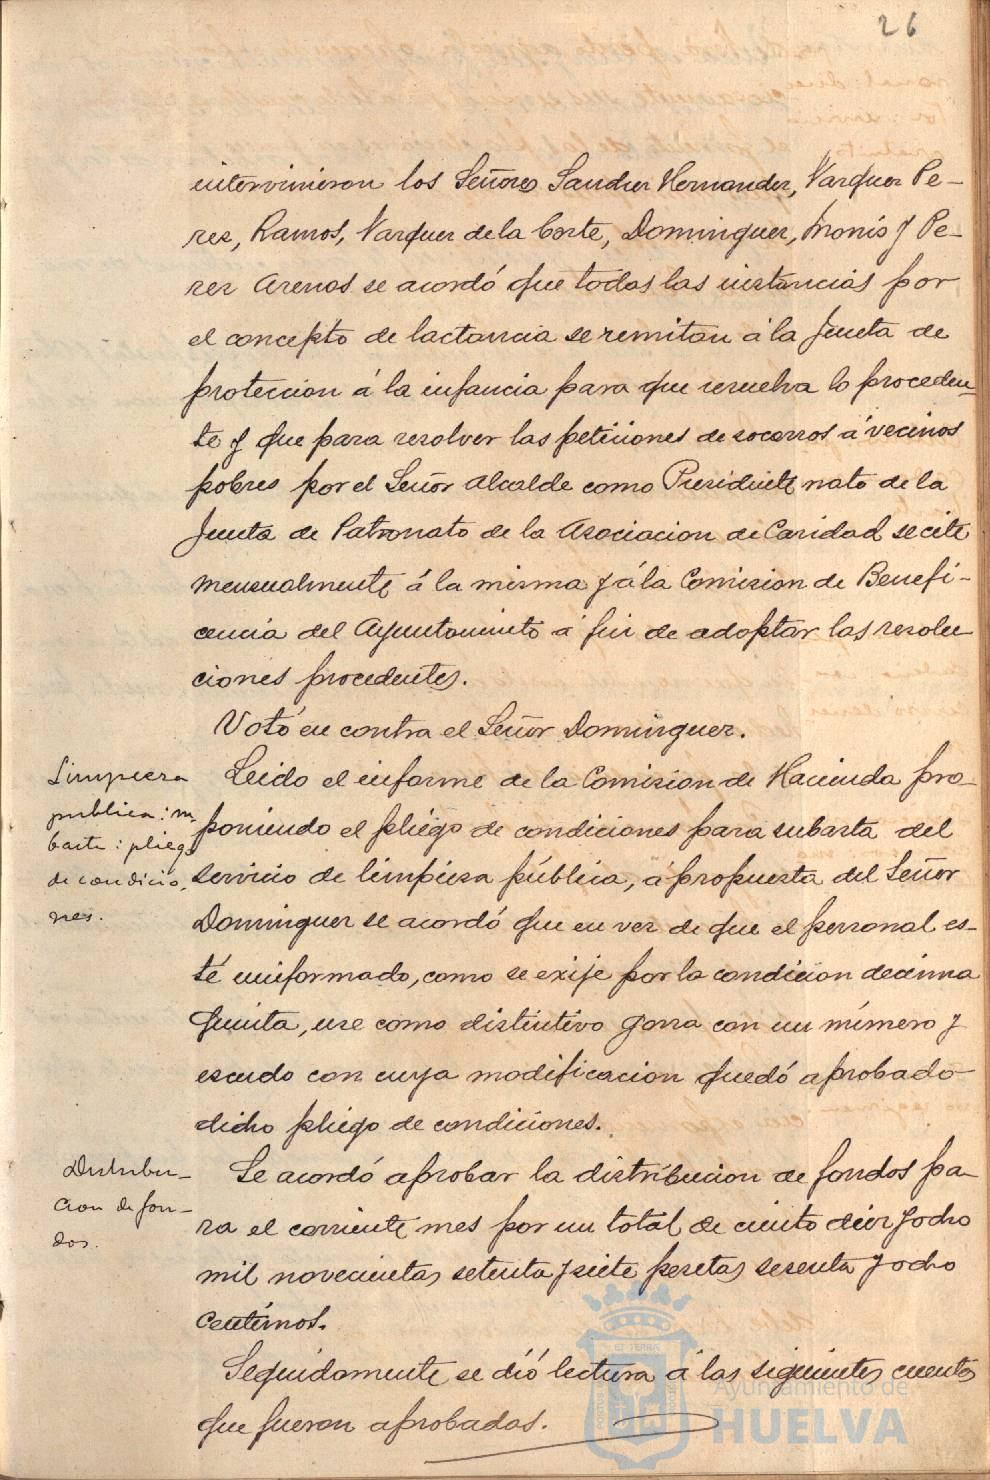 26
intervinieron los Señores Sanchez Hernandez, Vazquez Pe-
rez, Ramos, Vazquez de la Corte, Dominguez, Monís y Pe-
rez Arenas se acordó que todas las instancias por
el concepto de lactancia se remitan á la Junta de
protección á la infancia para que resuelva lo proceden-
te y que para resolver las peticiones de socorros á vecinos
pobres por el Señor Alcalde como Presidente nato de la
Junta de Patronato de la Asociacion de Caridad se cite
mensualmente á la misma y á la Comision de Benefi-
cencia del Ayuntamiento á fin de adoptar las resolu
ciones procedentes.
Votó en contra el Señor Dominguez.
Limpieza
publica: su
basta: pliego
de condicio,
nes.
Leido el informe de la Comision de Hacienda pro-
poniendo el pliego de condiciones para subasta del
servicio de limpieza pública, á propuesta del Señor
Dominguez se acordó que en vez de que el personal es-
té uniformado, como se exije por la condicion decima
quinta, use como distintivo gorra con un número y
escudo con cuya modificacion quedó aprobado
dicho pliego de condiciones.
Distribu-
cion de fon-
dos.
Se acordó aprobar la distribucion de fondos pa-
ra el corriente mes por un total de ciento diez y ocho
mil novecientas setenta y siete pesetas sesenta y ocho
centimos.
Seguidamente se dió lectura á las siguientes cuentas
que fueron aprobadas.
Ayuntamiento de
HUELVA